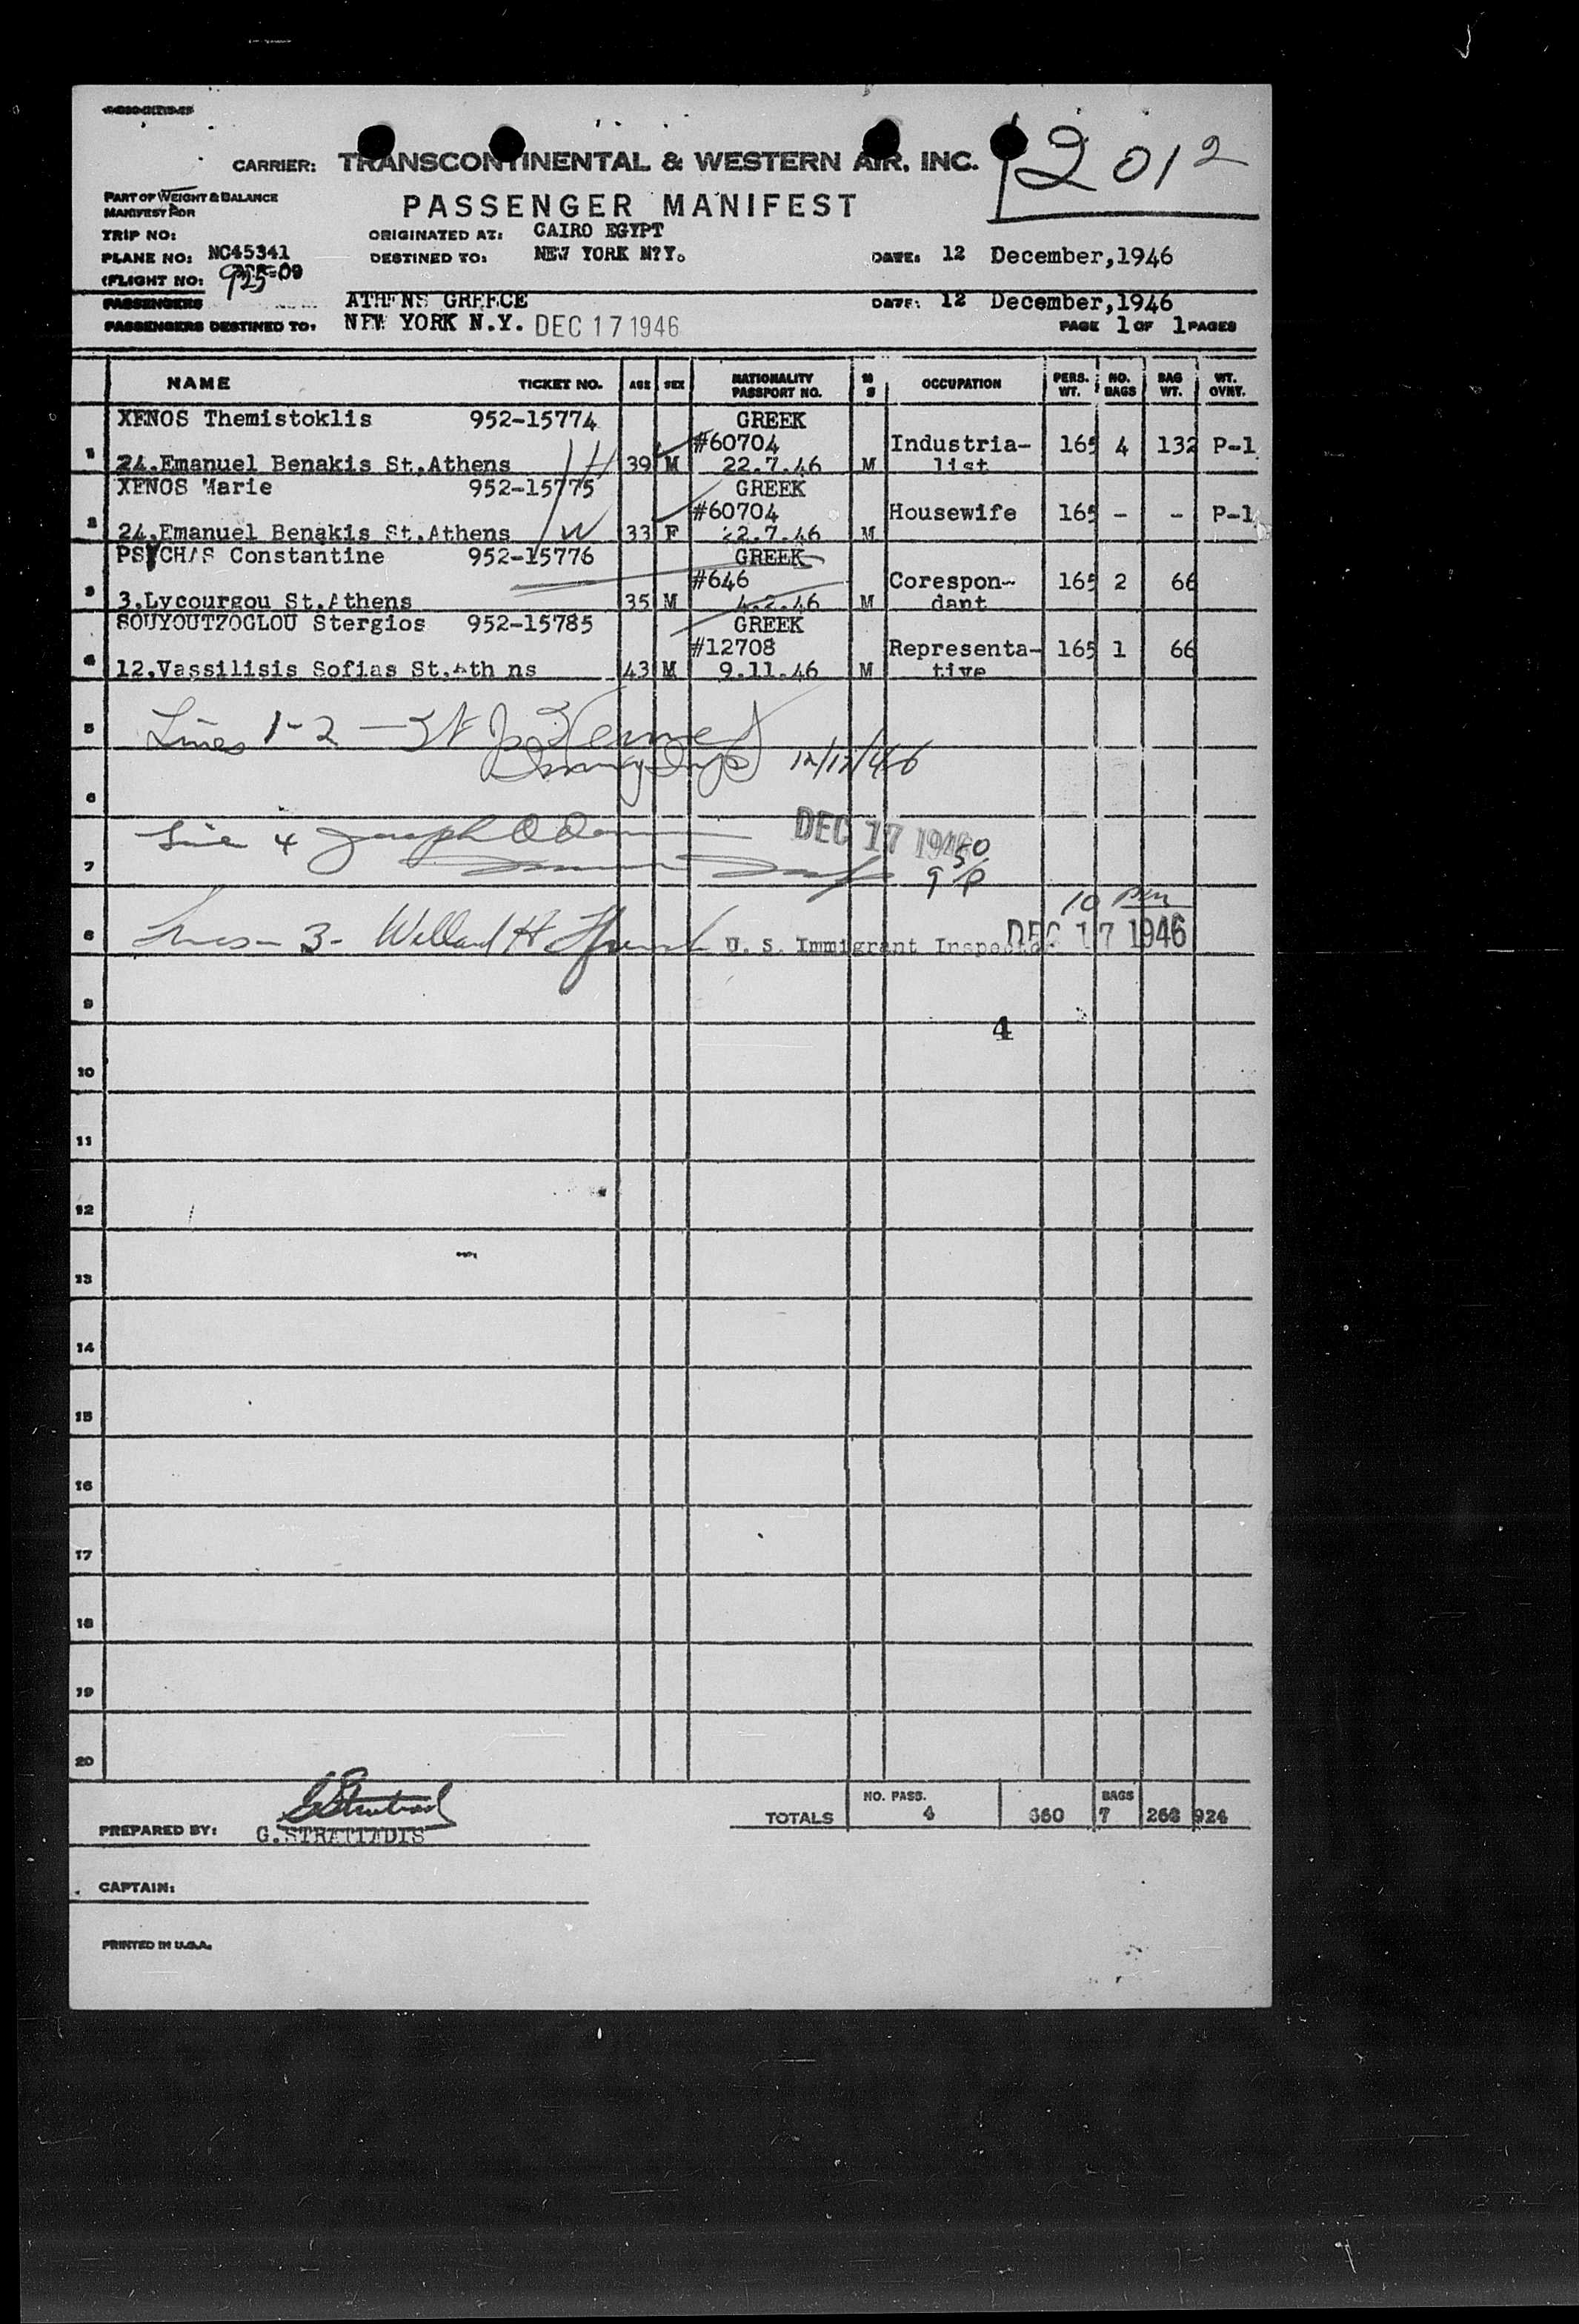 CARRIER: TRANSCONTINENTAL & WESTERN AIR, INC.
2012
PART OF WEIGHT & BALANCE
MANIFEST FOR
PASSENGER MANIFEST
TRIP NO:
ORIGINATED AT: CAIRO EGYPT
PLANE NO: NC45341
DESTINED TO: NEW YORK N?Y.
DATE: 12 December,1946
(FLIGHT NO: 925-09
PASSENGERS ATHENS GREECE DATE: 12 December,1946
PASSENGERS DESTINED TO: NEW YORK N.Y. DEC 17 1946 PAGE 1 OF 1 PAGES
NAME TICKET NO. AGE SEX NATIONALITY PASSPORT NO. M S OCCUPATION PERS. WT. NO. BAGS BAG WT. WT. OVNT.
XENOS Themistoklis 952-15774 GREEK
1 #60704 Industria- 165 4 132 P-1
24.Emanuel Benakis St.Athens 39 M 22.7.46 M list
XENOS Marie 952-15775 GREEK
2 #60704 Housewife 165 - - P-1
24.Emanuel Benakis St.Athens 33 F 22.7.46 M
PSYCHAS Constantine 952-15776 GREEK
3 #646 Corespon- 165 2 66
3.Lycourgou St.Athens 35 M 4.2.46 M dant
SOUYOUTZOGLOU Stergios 952-15785 GREEK
4 #12708 Representa- 165 1 66
12.Vassilisis Sofias St.Ath ns 43 M 9.11.46 M tive
5 Lines 1-2
12/17/46
6
Line 4 Joseph DEC 17 1946
7
9 50/P
10 PM
8 Lines - 3 - Willard H. U. S. Immigrant Inspector DEC 17 1946
9
4
10
11
12
13
14
15
16
17
18
19
20
TOTALS NO. PASS. 4 660 BAGS 7 268 924
PREPARED BY: G.STRATIADIS
CAPTAIN:
PRINTED IN U.S.A.